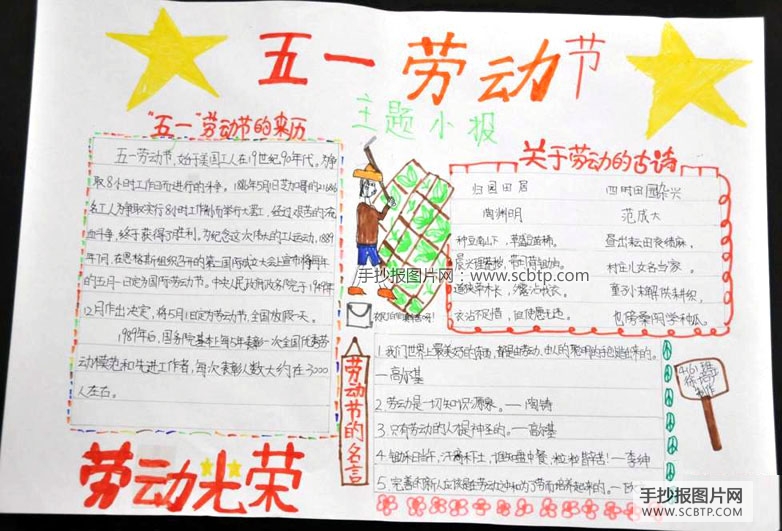 五一劳动节
主题小报
"五一"劳动节的来历
五一劳动节,始于美国工人在19世纪90年代。为争
取8小时工作日而进行的斗争。1886年5月1日芝加哥的21686
名工人为争取实行8小时工作制而举行大罢工,经过艰苦的流
血斗争,终于获得了胜利。为纪念这次伟大的工人运动,1889
年7月,在恩格斯组织召开的第二国际成立大会宣布将每年
的五月一日定为国际劳动节。中央人民政府政务院于1949年
12月作出决定,将5月1日定为劳动节,全国放假一天。
1989年后,国务院基本上每5年表彰一次全国优秀劳
动模范和先进工作者,每次表彰人数大约在3000
人左右。
劳动光荣
关于劳动的古诗
归园田居
陶渊明
种豆南山下,草盛豆苗稀。
晨兴理荒秽,带月荷锄归。
道狭草木长,夕露沾我衣。
衣沾不足惜,但使愿无违。
四时田园杂兴
范成大
昼出耘田夜绩麻,
村庄儿女各当家。
童子未解供耕织,
也傍桑阴学种瓜。
手抄报图片网:www.scbtp.com
劳动节的名言
1.我们世界上最美好的东西,都是由劳动、由人的聪明的手创造出来的。
—高尔基
2.劳动是一切知识的源泉。—陶铸
3.只有劳动的人才是神圣的。—高尔基
4.锄禾日当午,汗滴禾下土,谁知盘中餐,粒粒皆辛苦!—李绅
5.完善的新人应该是在劳动之中和为了劳动而培养起来的。
手抄报图片网
WWW.SCBTP.COM